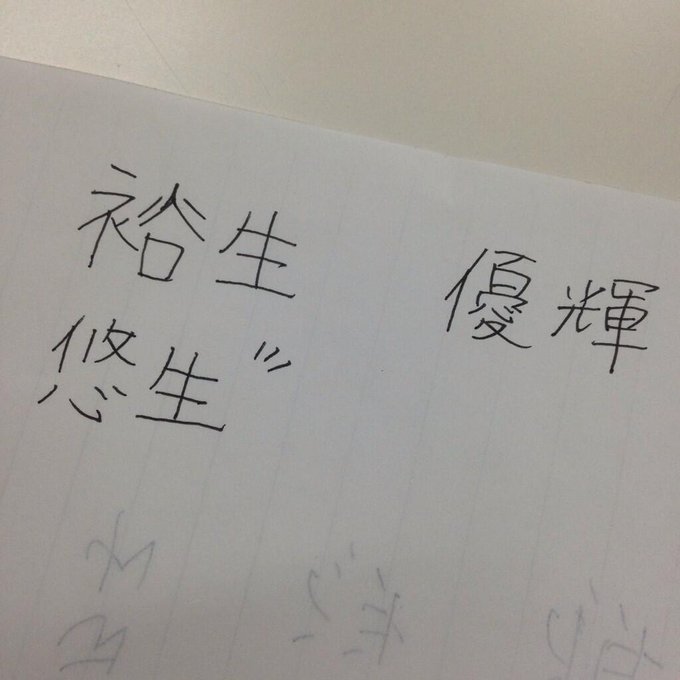 裕生 優輝
悠生〃